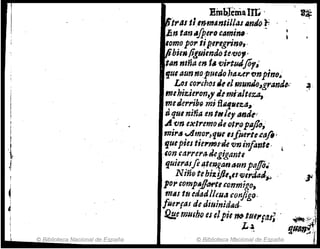 Emblema III.
tras ti en mantillas ando?
En tan aspero camino
como por ti peregrino,
si bien siguiendo te voy
tan niña en la virtud soy,
que aun no puedo hazer vn pino.
Los corchos de el mundo, grande
me hizieron, y de mi alteza,
me derribo mi flaqueza,
à que niña en tu ley ande
A vn extremo de otro passo,
mira Amor, que es fuerte caso
que pies tiernos de vn infante
con carrera de gigante
quieras se atengan a vn passo.
Niño te hize, es verdad,
por compassarte conmigo,
mas tu edad lleua consigo
fuerças de diuinidad
Que mucho es el pie no tuerças;
L 2
© Biblioteca Nacional de España
© Biblioteca Nacional de España